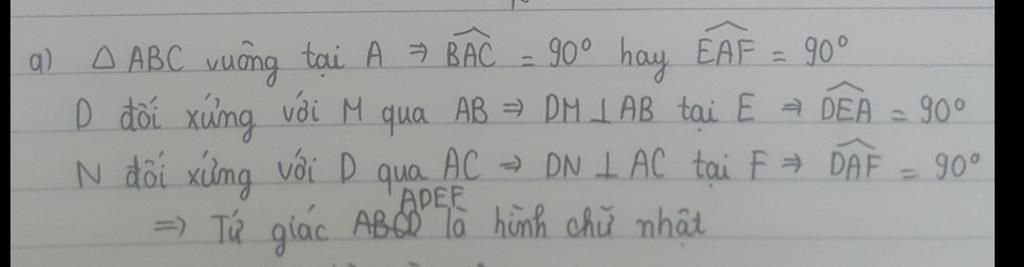 a) △ ABC vuông tại A ⇒ \widehat{BAC} = 90° hay \widehat{EAF} = 90°
D đối xứng với M qua AB ⇒ DM ⊥ AB tại E ⇒ \widehat{DEA} = 90°
N đối xứng với D qua AC ⇒ DN ⊥ AC tại F ⇒ \widehat{DAF} = 90°
ADEF
⇒ Tứ giác ABCD là hình chữ nhật